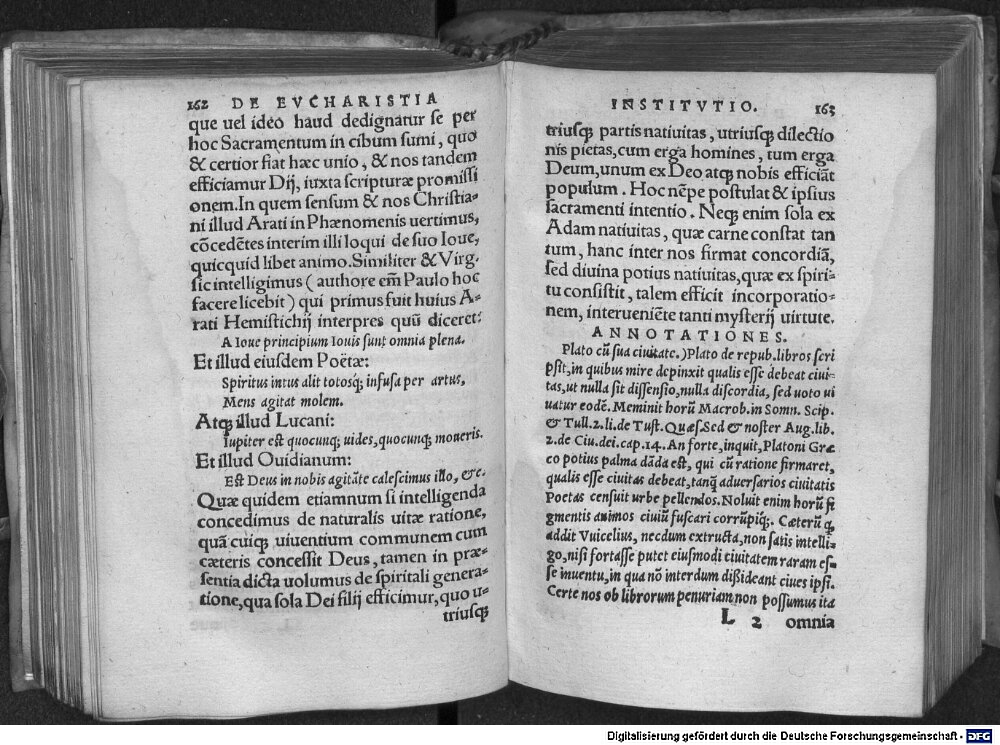 162 DE EVCHARISTIA
que uel ideo haud dedignatur se per
hoc Sacramentum in cibum sumi, quo
& certior fiat hæc unio, & nos tandem
efficiamur Dij, iuxta scripturæ promissi
onem. In quem sensum & nos Christia-
ni illud Arati in Phænomenis uertimus,
cõcedẽtes interim illi loqui de suo Ioue,
quicquid libet animo. Similiter & Virg.
sic intelligimus (authore em̃ Paulo hoc
facere licebit) qui primus fuit huius A-
rati Hemistichij interpres quũ diceret:
A Ioue principium Iouis sunt omnia plena.
Et illud eiusdem Poëtæ:
Spiritus intus alit totosq; infusa per artus,
Mens agitat molem.
Atq; illud Lucani:
Iupiter est quocunq; uides, quocunq; moueris.
Et illud Ouidianum:
Est Deus in nobis agitãte calescimus illo, &c.
Quæ quidem etiamnum si intelligenda
concedimus de naturalis uitæ ratione,
quã cuiq; uiuentium communem cum
cæteris concessit Deus, tamen in præ-
sentia dicta uolumus de spiritali genera-
tione, qua sola Dei filij efficimur, quo u-
triusq;
INSTITVTIO. 163
triusq; partis natiuitas, utriusq; dilectio
nis pietas, cum erga homines, tum erga
Deum, unum ex Deo atq; nobis efficiãt
populum. Hoc nẽpe postulat & ipsius
sacramenti intentio. Neq; enim sola ex
Adam natiuitas, quæ carne constat tan
tum, hanc inter nos firmat concordiã,
sed diuina potius natiuitas, quæ ex spiri-
tu consistit, talem efficit incorporatio-
nem, interueniẽte tanti mysterij uirtute.
ANNOTATIONES.
Plato cũ sua ciuitate.) Plato de repub. libros scri
psit, in quibus mire depinxit qualis esse debeat ciui-
tas, ut nulla sit dissensio, nulla discordia, sed uoto ui
uatur eodẽ. Meminit horũ Macrob. in Somn. Scip.
& Tull. 2. li. de Tust. Quæs. Sed & noster Aug. lib.
2. de Ciu. dei. cap. 14. An forte, inquit, Platoni Græ
co potius palma dãda est, qui cũ ratione firmaret,
qualis esse ciuitas debeat, tanq̃ aduersarios ciuitatis
Poetas censuit urbe pellendos. Noluit enim horũ fi
gmentis animos ciuiũ fuscari corrũpiq;. Cæterũ q̃
addit Vuicelius, necdum extructa, non satis intelli-
go, nisi fortasse putet eiusmodi ciuitatem raram es-
se inuentu, in qua nõ interdum dißideant ciues ipsi.
Certe nos ob librorum penuriam non possumus ita
L 2 omnia
Digitalisierung gefördert durch die Deutsche Forschungsgemeinschaft - DFG